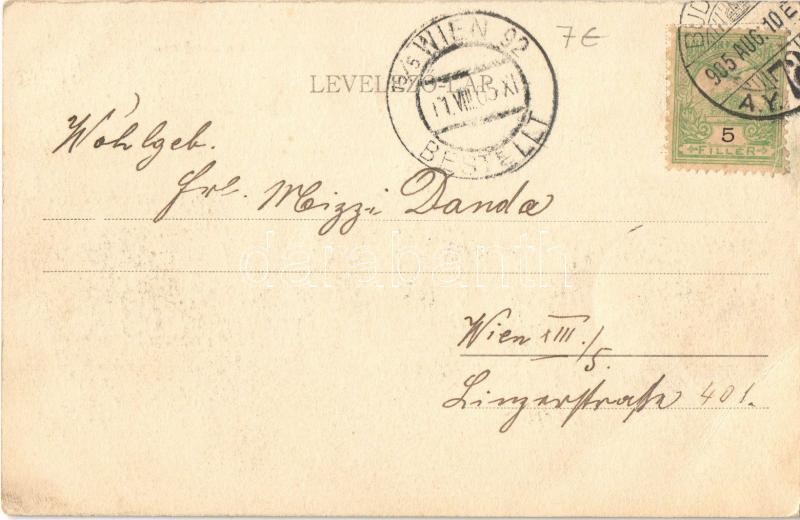 7 €
WIEN 92
BUD
905 AUG. 10 E
A.Y.
LEVELEZŐ-LAP
11.VIII.05 XI
BESTELLT
5
FILLÉR
Wohlgeb.
Frl. Mizzi Danda
darabanth
Wien XIII./5.
Linzerstraße 401.